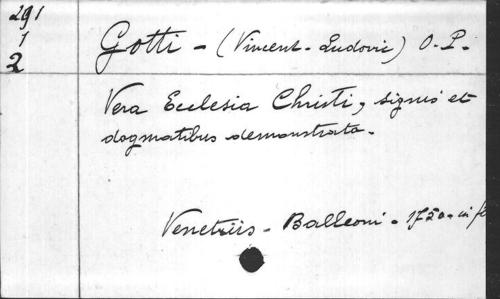 291
1
2
Gotti - (Vincent - Ludovic) O. P.
Vera Ecclesia Christi, signis et
dogmatibus demonstrata.
Venetiis - Balleoni - 1750 - in f